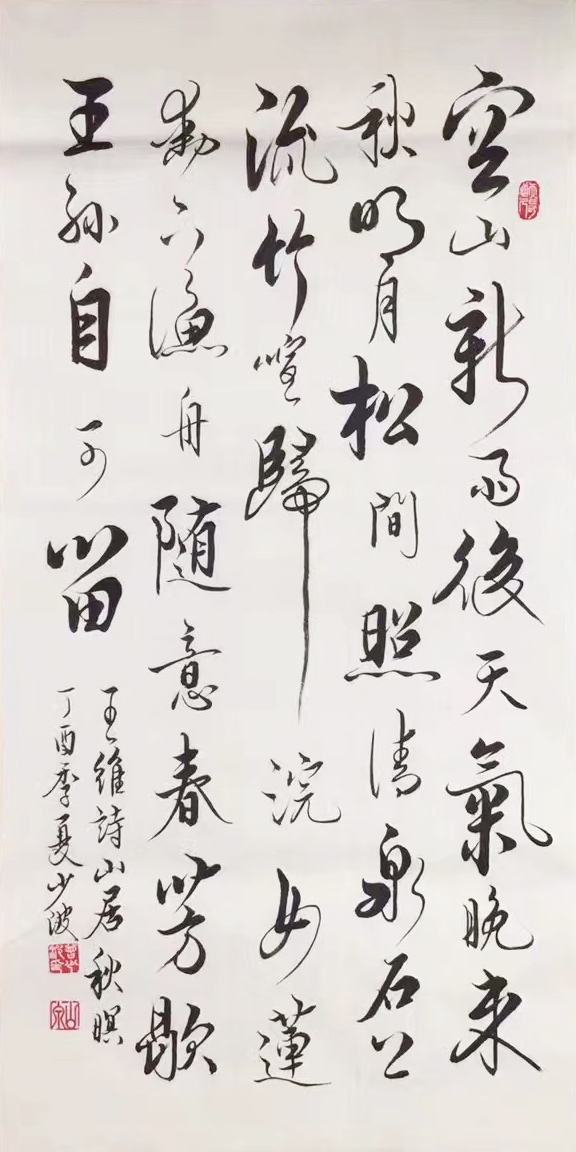 空山新雨後天氣晚来
秋明月松間照清泉石上
流竹喧歸浣女蓮
動下漁舟随意春芳歇
王孫自可留
王維詩山居秋暝
丁酉季夏少波